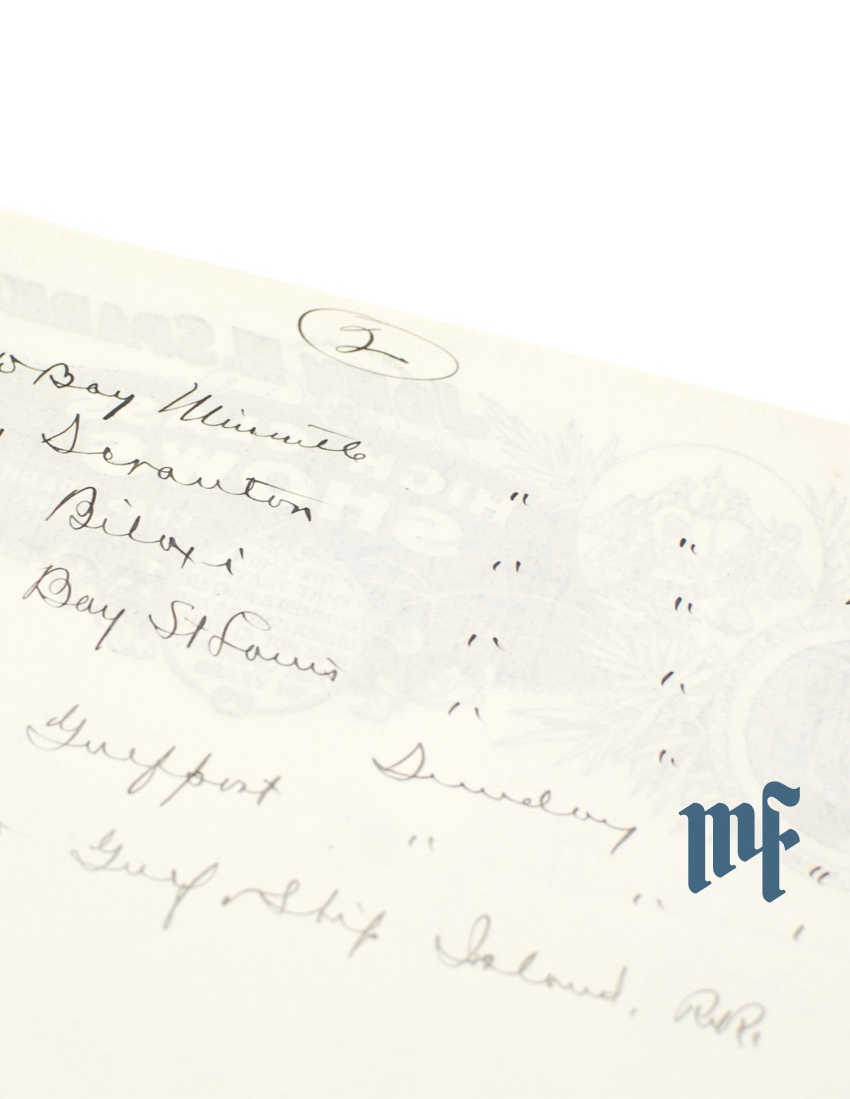 2
Bay Minnette "
Scranton " "
Biloxi " "
Bay St Louis " "
Gulfport Sunday "
" " "
Gulf & Ship Island. R.R.
mf